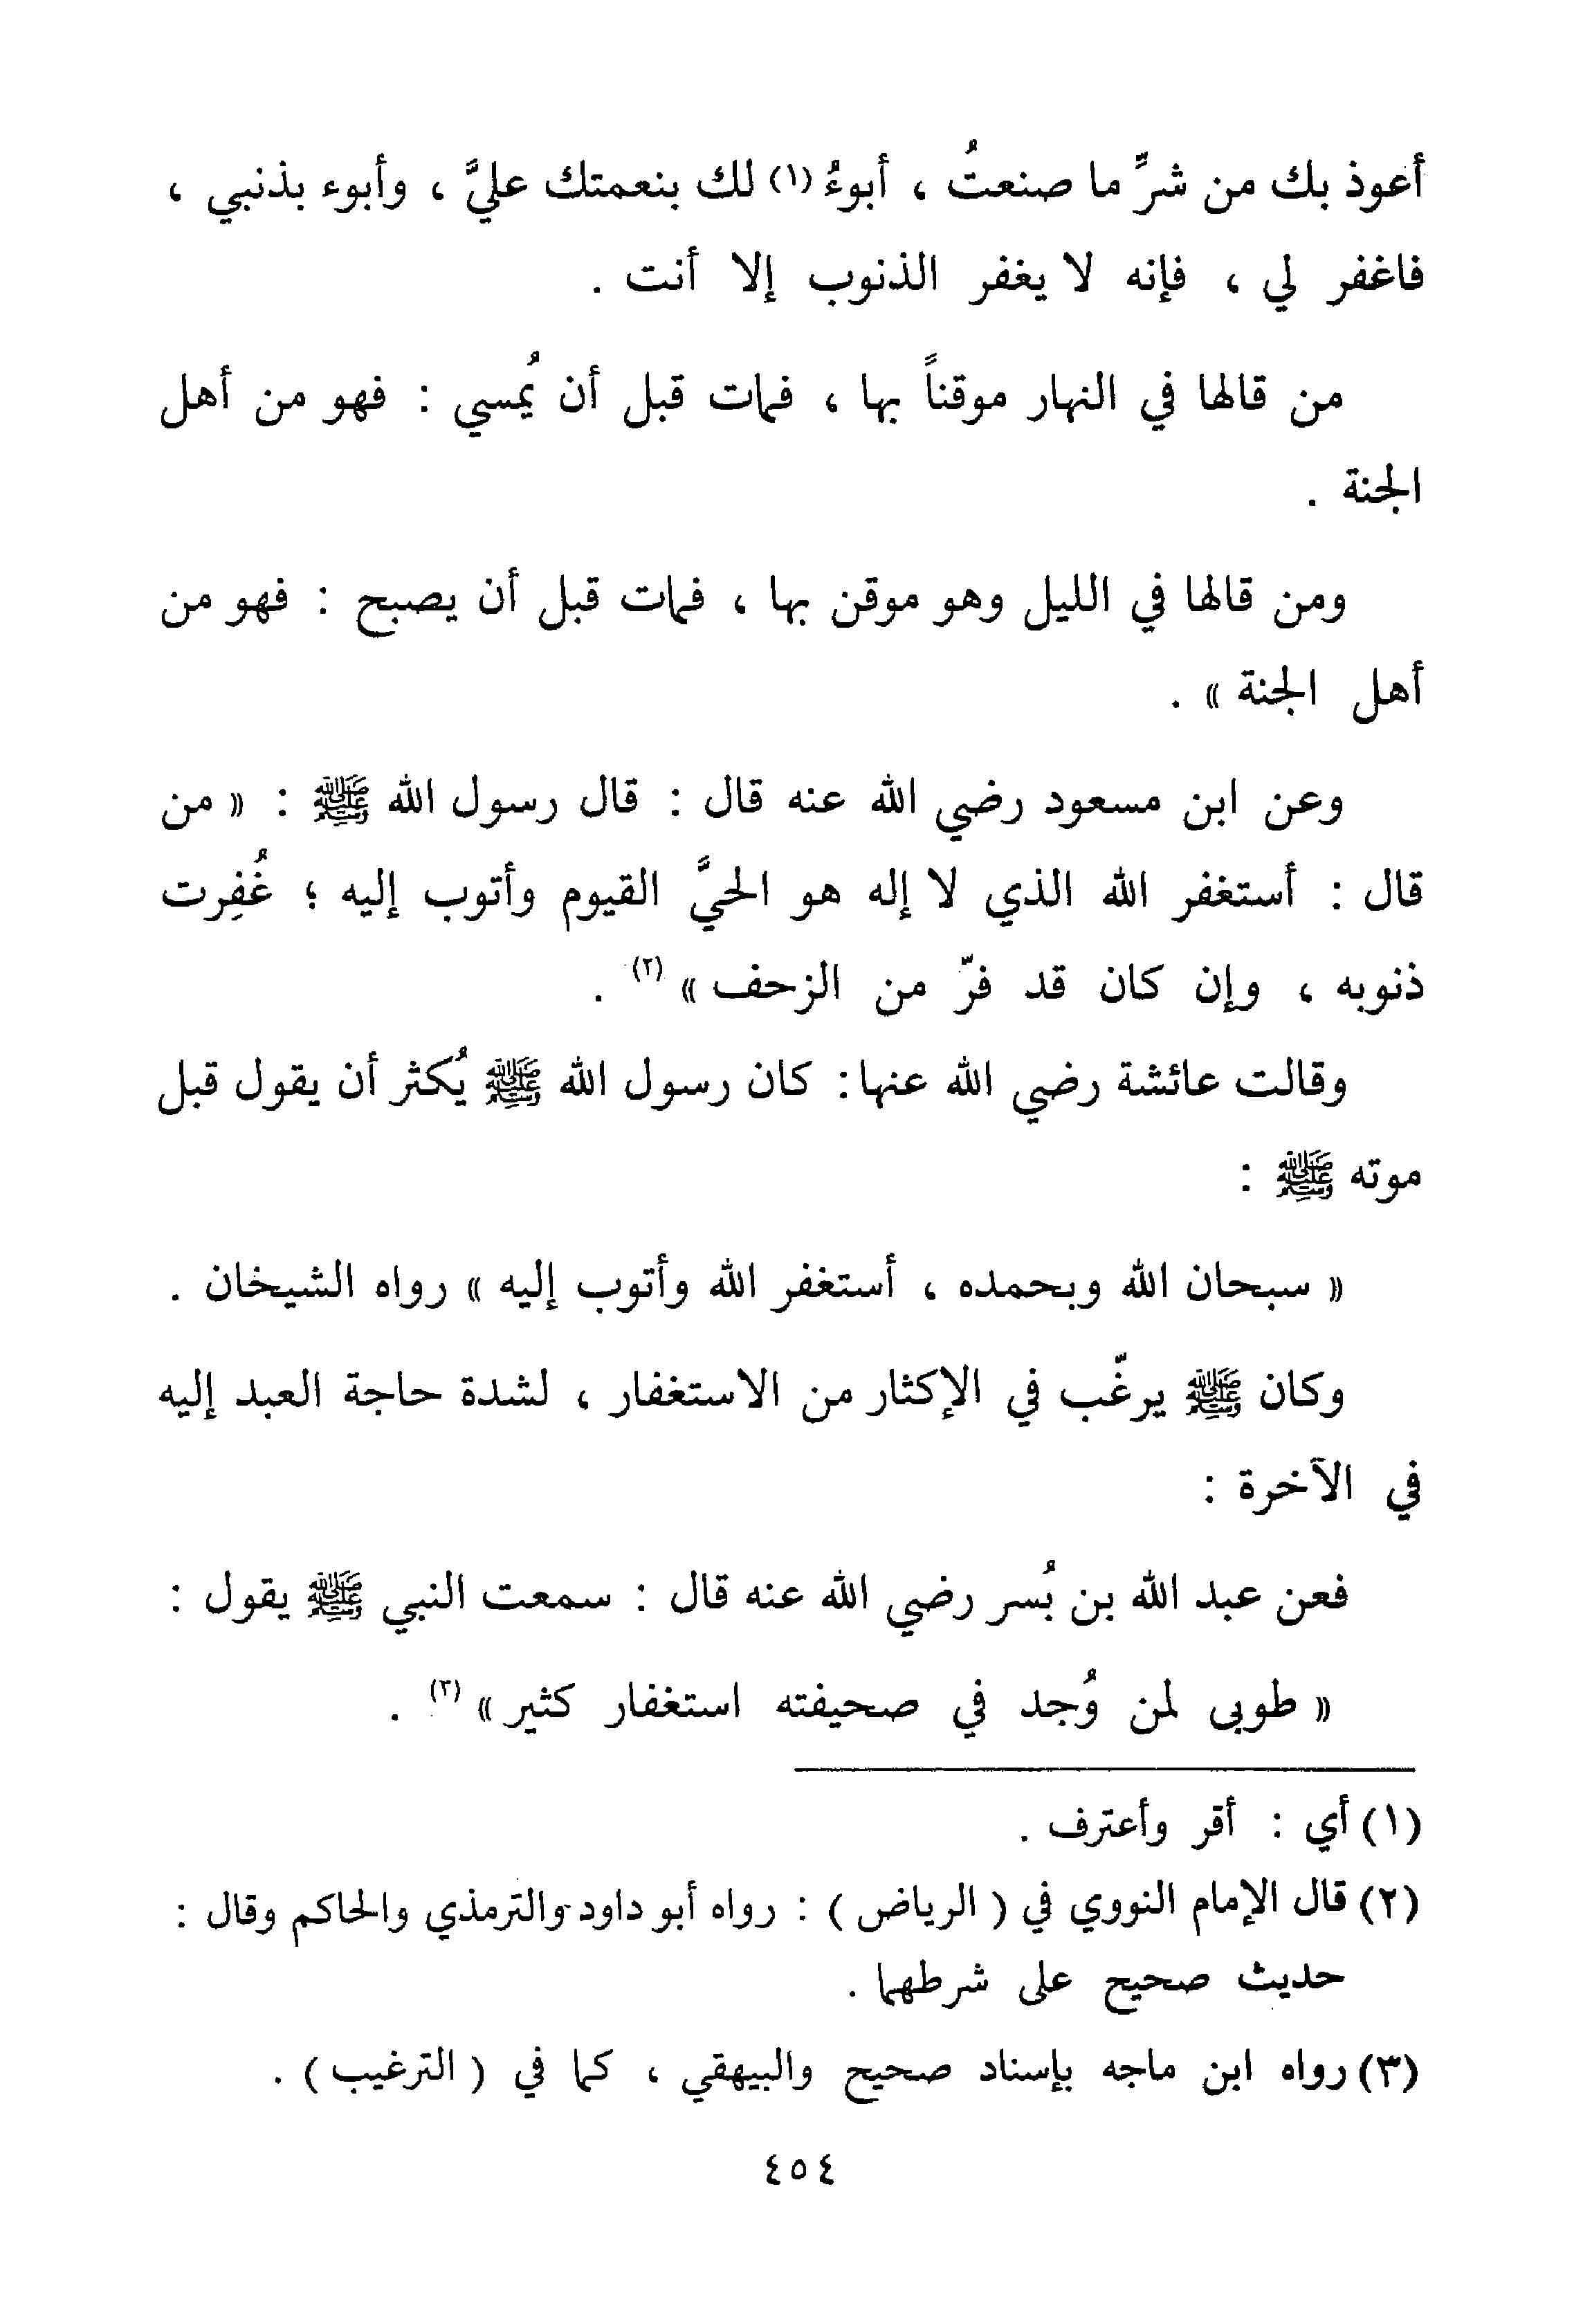 أعوذ بك من شرِّ ما صنعتُ ، أبوءُ (١) لك بنعمتك عليَّ ، وأبوء بذنبي ،
فاغفر لي ، فإنه لا يغفر الذنوب إلا أنت .
من قالها في النهار موقناً بها ، فمات قبل أن يُمسي : فهو من أهل
الجنة .
ومن قالها في الليل وهو موقن بها ، فمات قبل أن يصبح : فهو من
أهل الجنة » .
وعن ابن مسعود رضي الله عنه قال : قال رسول الله ﷺ : « من
قال : أستغفر الله الذي لا إله هو الحيَّ القيوم وأتوب إليه ؛ غُفِرت
ذنوبه ، وإن كان قد فرّ من الزحف » (٢) .
وقالت عائشة رضي الله عنها : كان رسول الله ﷺ يُكثر أن يقول قبل
موته ﷺ :
« سبحان الله وبحمده ، أستغفر الله وأتوب إليه » رواه الشيخان .
وكان ﷺ يرغّب في الإكثار من الاستغفار ، لشدة حاجة العبد إليه
في الآخرة :
فعن عبد الله بن بُسر رضي الله عنه قال : سمعت النبي ﷺ يقول :
« طوبى لمن وُجد في صحيفته استغفار كثير » (٣) .
(١) أي : أقر وأعترف .
(٢) قال الإمام النووي في ( الرياض ) : رواه أبو داود والترمذي والحاكم وقال :
حديث صحيح على شرطهما .
(٣) رواه ابن ماجه بإسناد صحيح والبيهقي ، كما في ( الترغيب ) .
٤٥٤